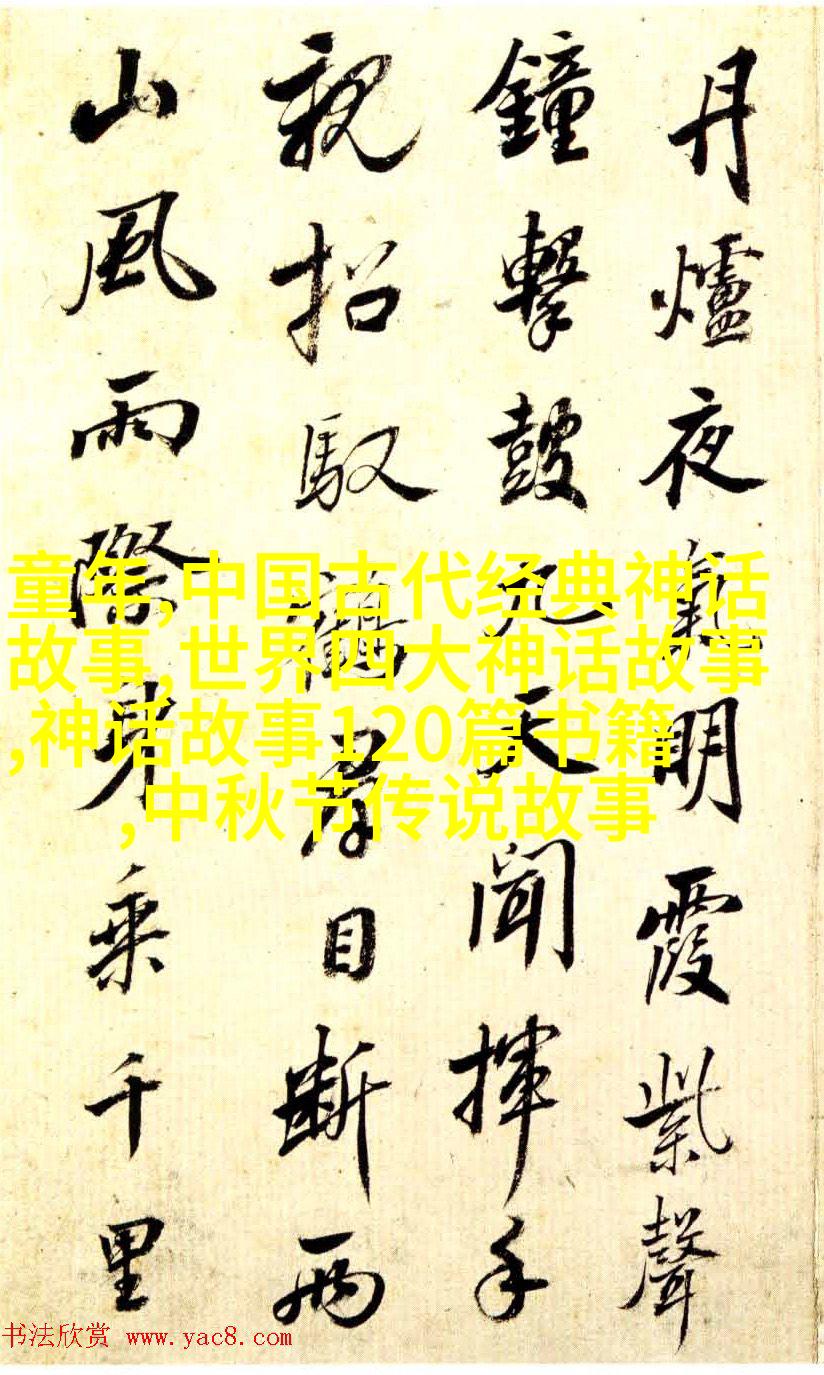 丹爐夜氣明霞紫聲
鐘擊鼓九天聞揮手
親招馭鶴羣目斷兩
山風雨際身乘千里
童年,中国古代经典神话
故事,世界四大神话故事
,神话故事120篇书籍
,中秋节传说故事
书法欣赏 www.yac8.com